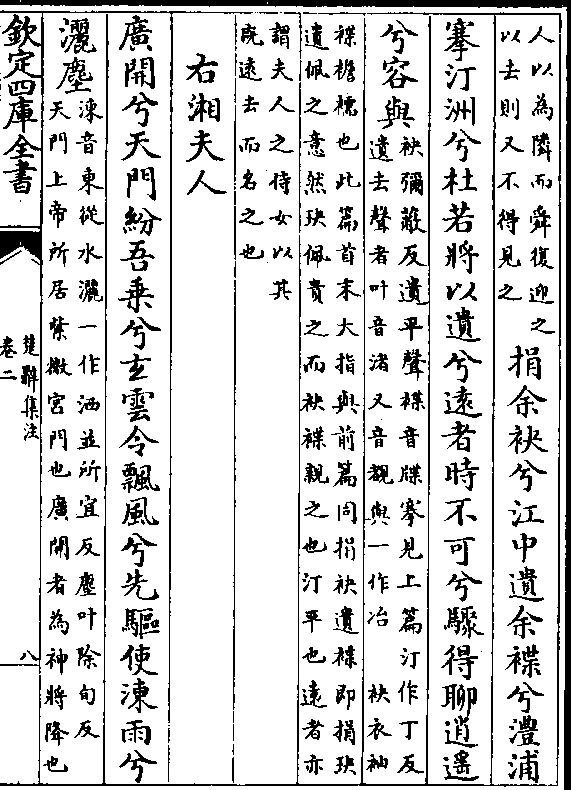 人以為隣而舜復迎之
以去則又不得見之
捐余袂兮江中遺余褋兮澧浦
搴汀洲兮杜若將以遺兮遠者時不可兮驟得聊逍遥
兮容與
袂彌蔽反遺平聲褋音牒搴見上篇汀作丁反
遺去聲者叶音渚又音覩與一作冶 袂衣袖
褋襜襦也此篇首末大指與前篇同捐袂遺褋即捐玦
遺佩之意然玦佩貴之而袂褋親之也汀平也遠者亦
謂夫人之侍女以其
既遠去而名之也
右湘夫人
廣開兮天門紛吾乗兮玄雲令飄風兮先驅使涷雨兮
灑塵
涷音東從水灑一作洒並所宜反塵叶除旬反
天門上帝所居紫微宫門也廣開者為神將降也
欽定四庫全書
楚辭集注
卷二
八